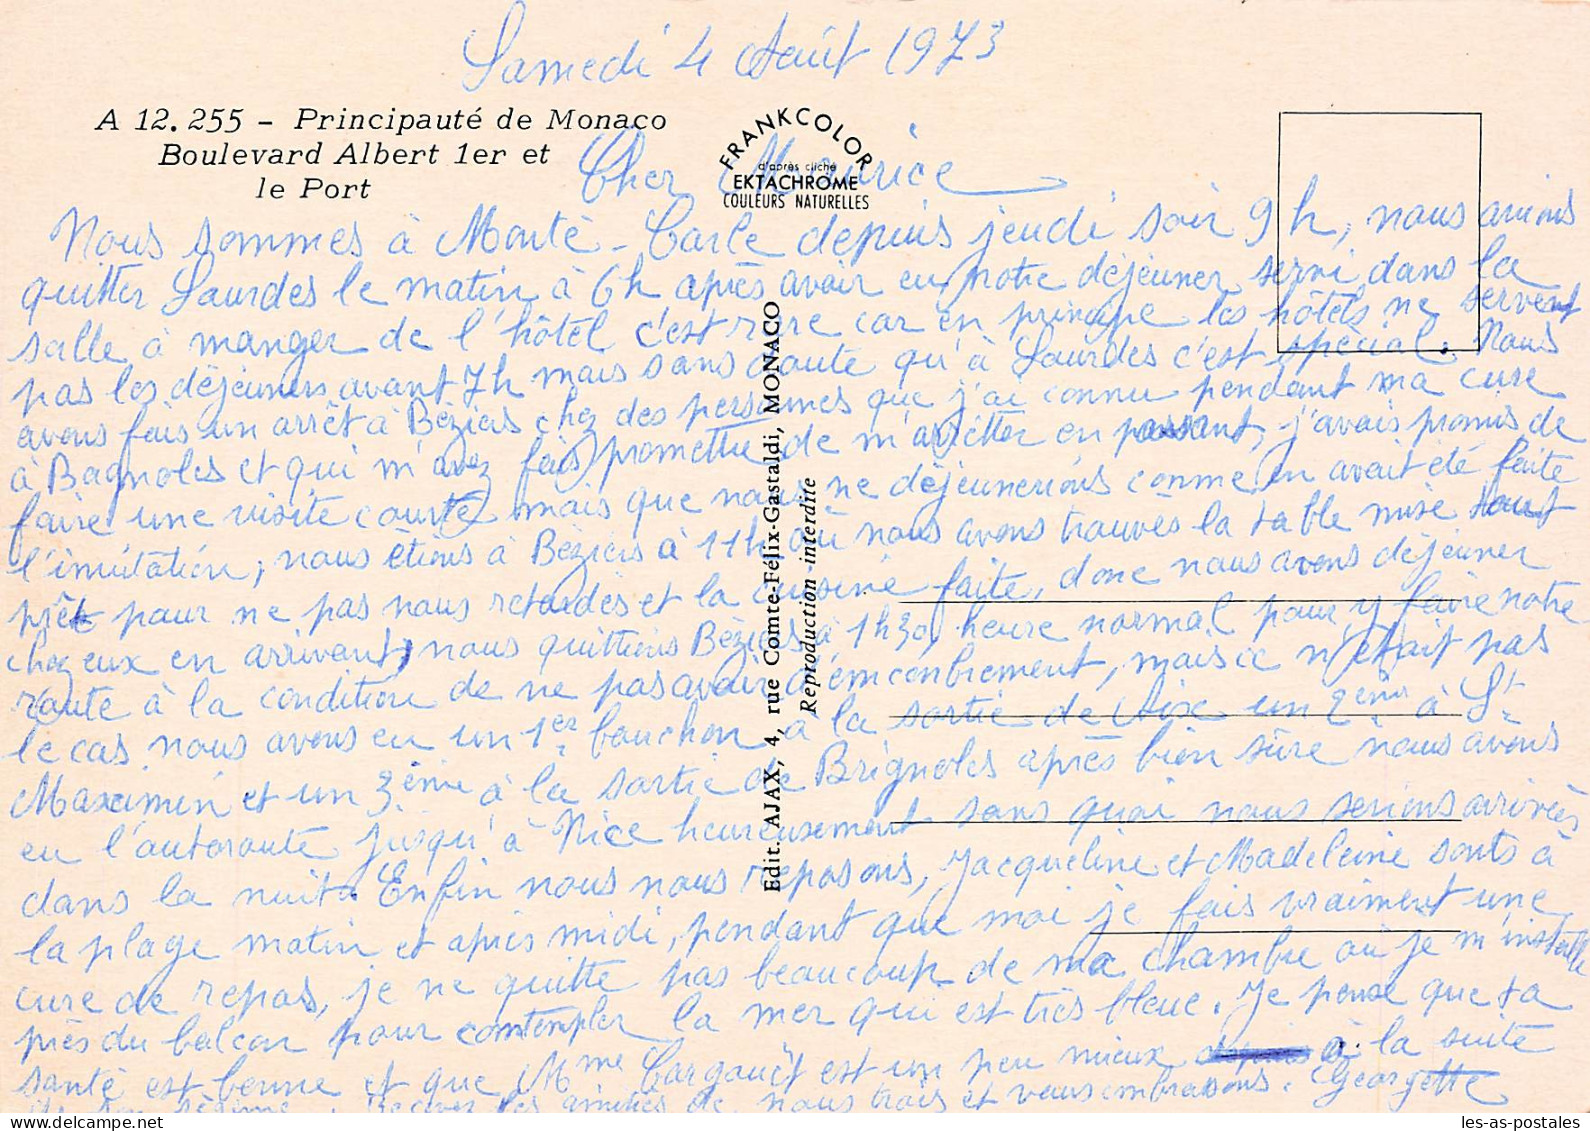 Samedi 4 Août 1973
A 12.255 - Principauté de Monaco
Boulevard Albert 1er et
le Port
FRANKCOLOR
d'après cliché
EKTACHROME
COULEURS NATURELLES
Cher Maurice
Nous sommes à Monté-Carle depuis jeudi soir 9h, nous avions
quitter Lourdes le matin à 6h après avoir eu notre déjéuner servi dans la
salle à manger de l'hôtel c'est rare car en principe les hôtels ne servent
pas les déjéuners avant 7h mais sans doute qu'à Lourdes c'est spécial. Nous
avons fais un arrêt à Béziers chez des personnes que j'ai connu pendant ma cure
à Bagnoles et qui m'avez fais promettre de m'arrêtter en passant, j'avais promis de
faire une visite courte mais que nous ne déjeunerions comme en avait été faite
l'invitation, nous étions à Béziers à 11h où nous avons trouvés la table mise tout
prêt pour ne pas nous retardés et la cuisine faite, donc nous avons déjeuner
chez eux en arrivant, nous quittions Béziers à 1h30, heure normal pour y faire notre
route à la condition de ne pas avoir d'émconbrement, mais ce n'était pas
le cas nous avons eu un 1er bouchon à la sortie de Aix un 2ème à St
Maximin et un 3ème à la sortie de Brignoles après bien sûre nous avons
eu l'autoroute jusqu'à Nice heureusement sans quoi nous serions arrivés
dans la nuit. Enfin nous nous reposons, Jacqueline et Madeleine sonts à
la plage matin et après midi, pendant que moi je fais vraiment une
cure de repos, je ne quitte pas beaucoup de ma chambre où je m'installe
près du balcon pour contempler la mer qui est très bleue. Je pense que ta
santé est bonne et que Mme Cargouët est un peu mieux à la suite
de son régime. Recevez les amitiés de nous trois et vous embrassons. Georgette
Edit. AJAX, 4, rue Comte-Félix-Gastaldi, MONACO
Reproduction interdite
les-as-postales